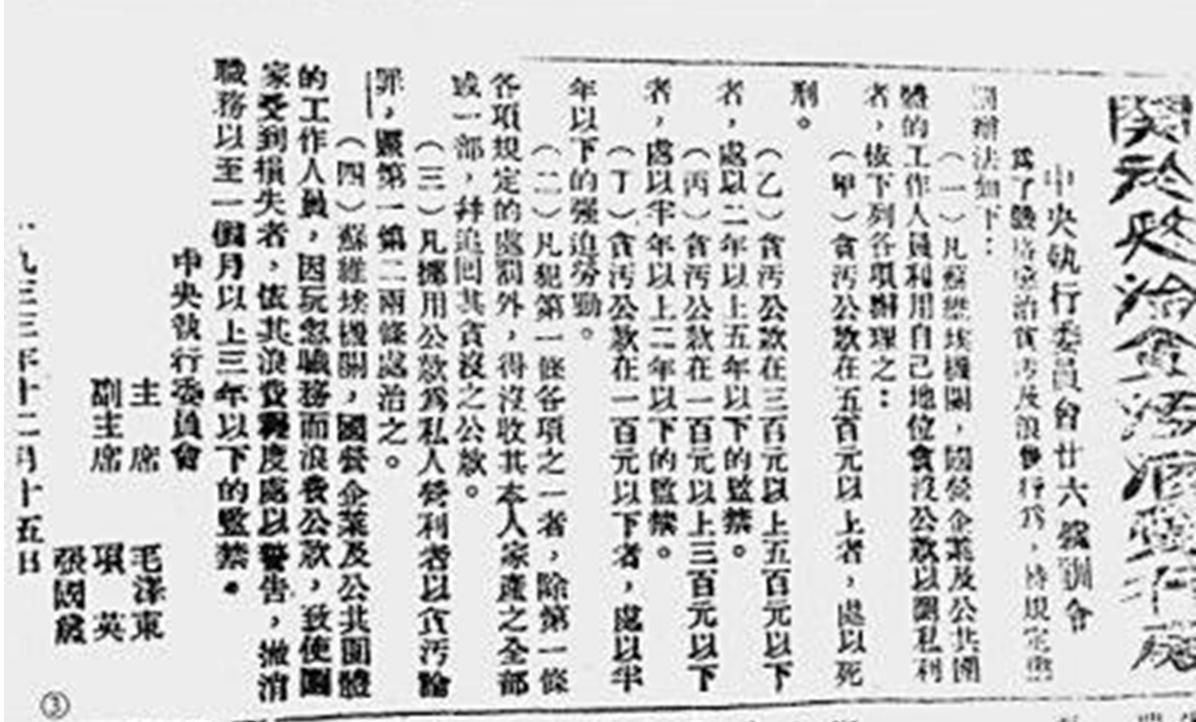 關於懲治貪污浪費行爲
中央執行委員會廿六號訓令
爲了嚴格懲治貪污及浪費行爲，特規定懲
罰辦法如下：
（一）凡蘇維埃機關，國營企業及公共團
體的工作人員利用自己地位貪沒公款以圖私利
者，依下列各項辦理之：
（甲）貪污公款在五百元以上者，處以死
刑。
（乙）貪污公款在三百元以上五百元以下
者，處以二年以上五年以下的監禁。
（丙）貪污公款在一百元以上三百元以下
者，處以半年以上二年以下的監禁。
（丁）貪污公款在一百元以下者，處以半
年以下的强迫勞動。
（二）凡犯第一條各項之一者，除第一條
各項規定的處罰外，得沒收其本人家產之全部
或一部，幷追回其貪沒之公款。
（三）凡挪用公款爲私人營利者以貪污論
罪，照第一第二兩條處治之。
（四）蘇維埃機關，國營企業及公共團體
的工作人員，因玩忽職務而浪費公款，致使國
家受到損失者，依其浪費程度處以警告，撤消
職務以至一個月以上三年以下的監禁。
中央執行委員會
主席 毛澤東
副主席 項英
張國燾
一九三三年十二月十五日
③